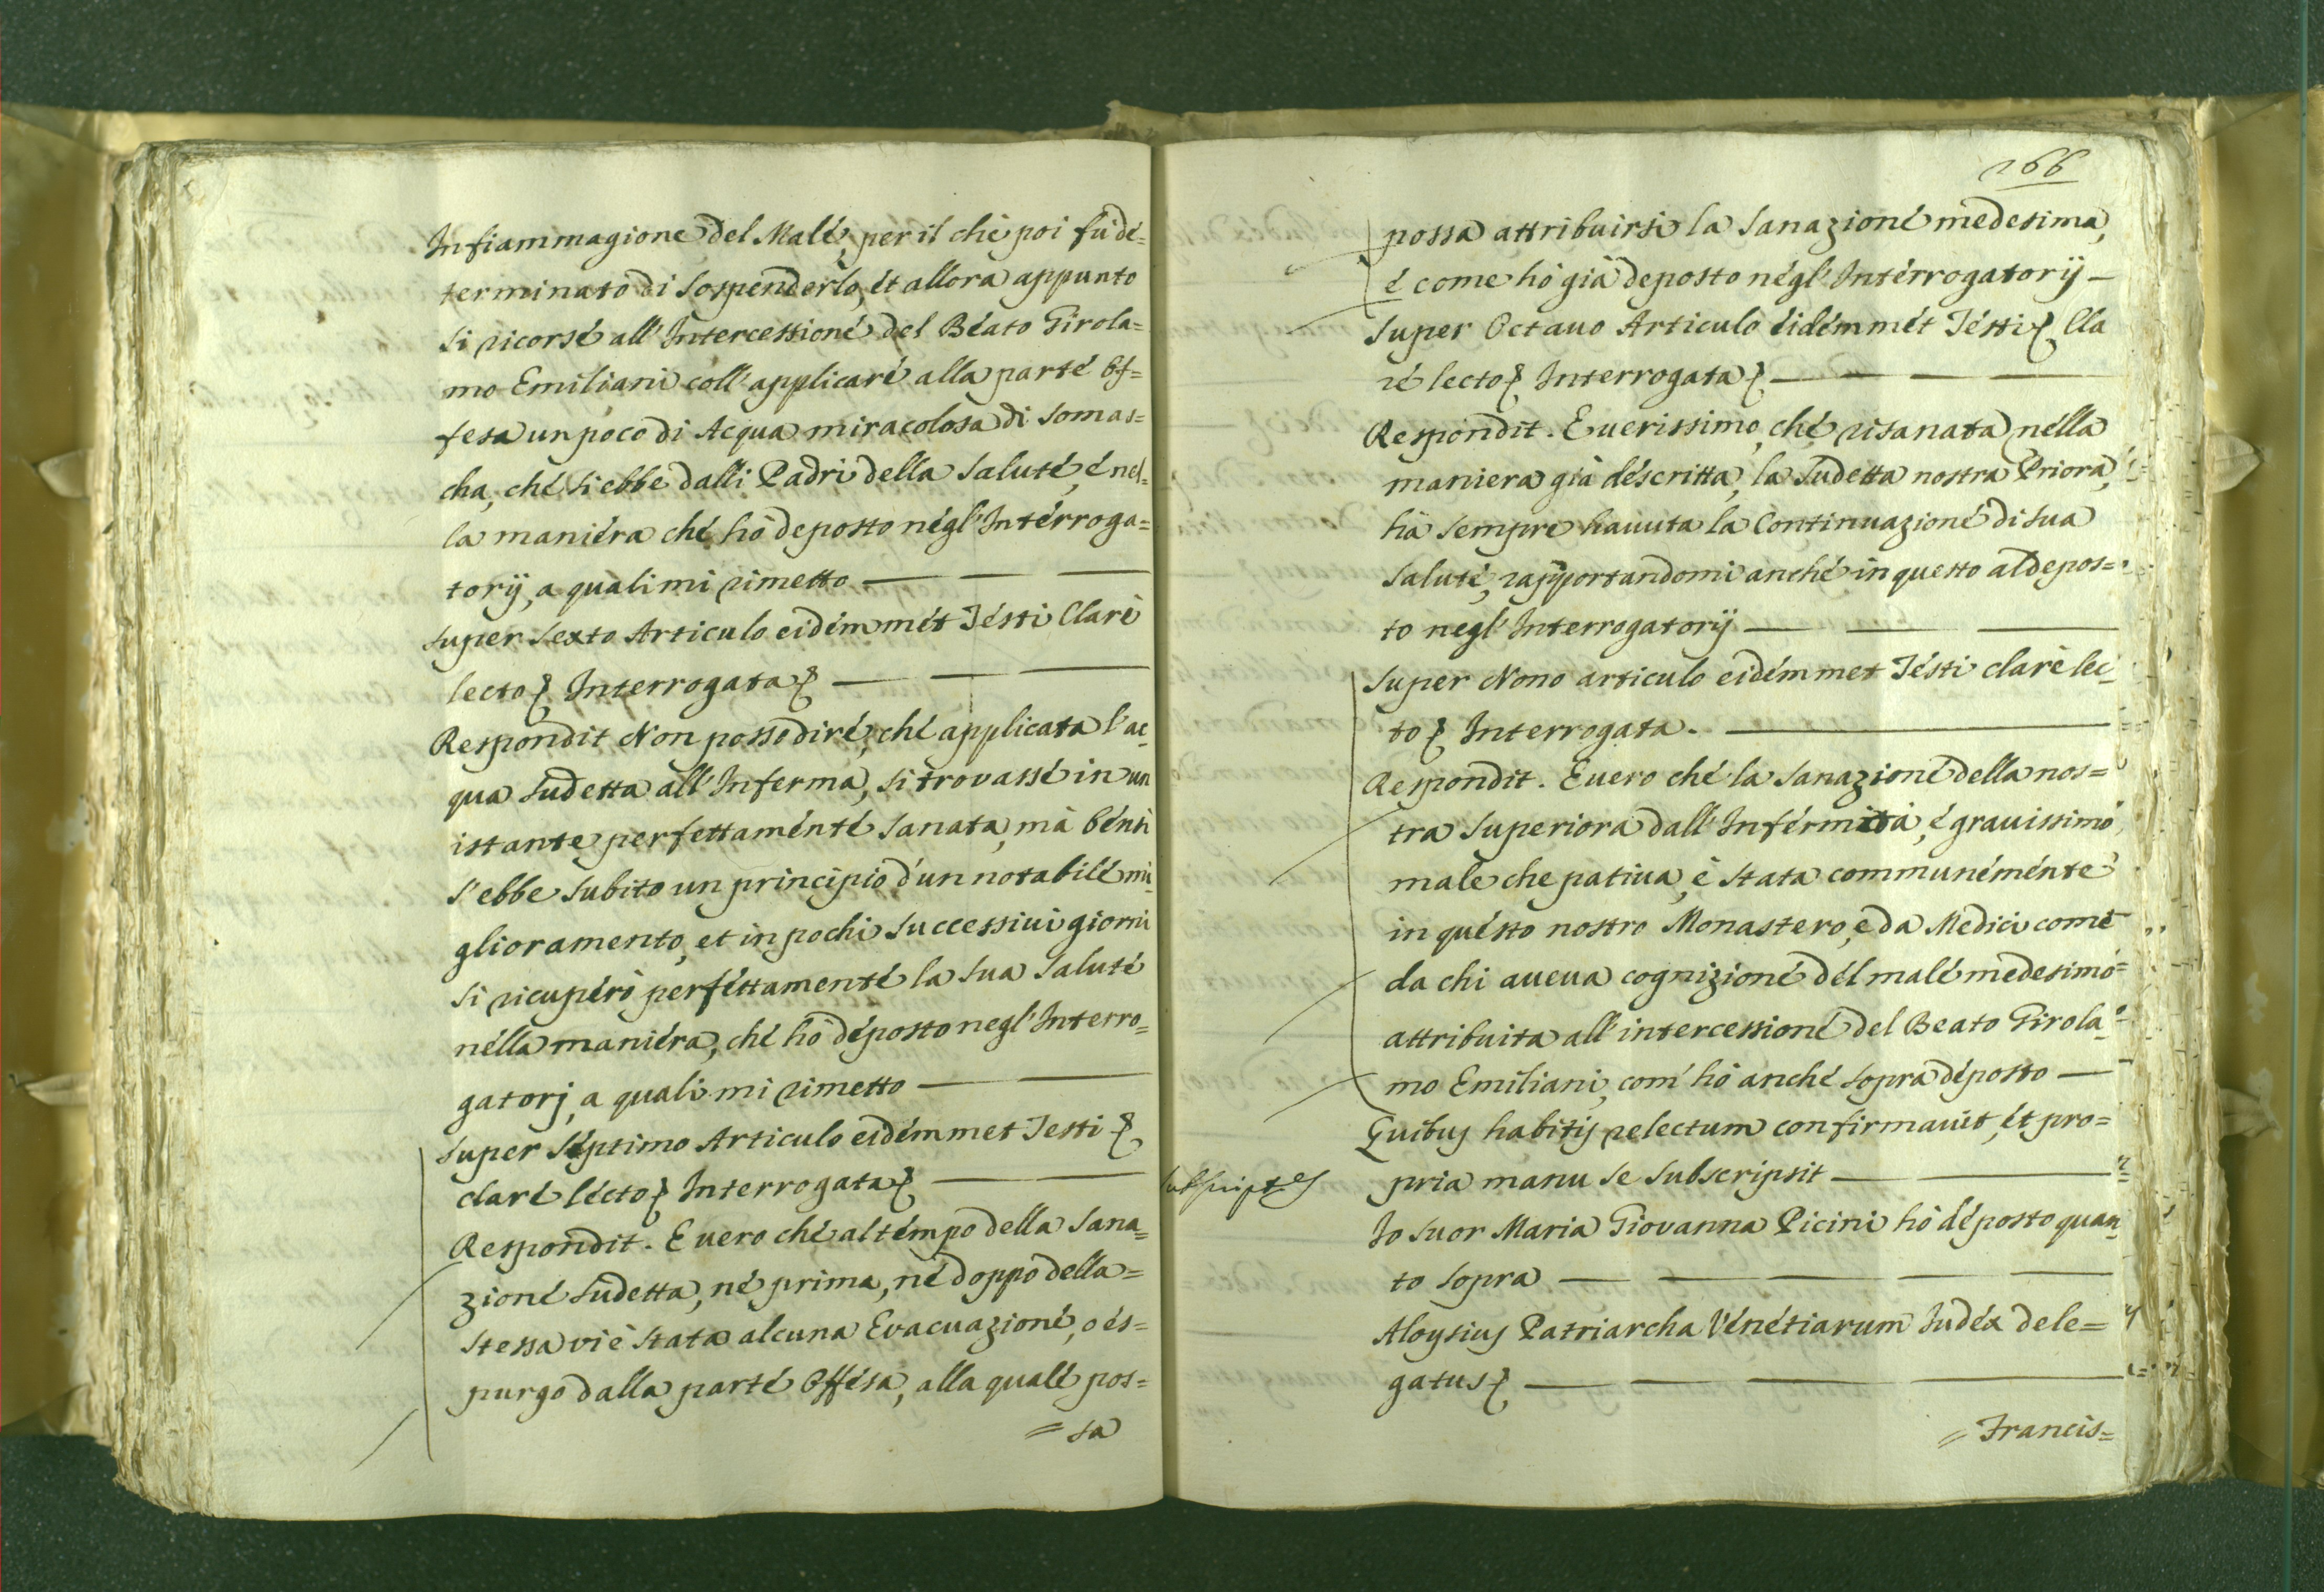 Infiammagione del Malé, per il ché poi fù dé=
terminato di Sospenderlo, ét allora appunto
si ricorsé all'Intercessioné del Béato Girola=
mo Emiliani coll'applicaré alla parté Of=
fesa un poco di Acqua miracolosa di Somas=
cha, ché si ebbe dalli Padri della Saluté, é nel=
la maniéra ché hò deposto négl'Intérroga=
torij, a quali mi rimetto
Super Sexto Articulo eidémmét Tésti Clarè
lecto Interrogata
Respondit Non posso diré, ché applicata l'ac=
qua sudetta all'Inferma, si trovassé in un
istante perfettaménté Sanata, mà bénsi
s'ebbe subito un principio d'un notabilé mi=
glioramento, et in pochi successiui giorni
si ricupérò perféttamenté la sua Saluté
nélla maniéra, ché hò déposto negl'Interro=
gatorj, a quali mi rimetto
Super Séptimo Articulo eidémmet Testi
claré lécto Interrogata
Respondit. E uero ché al témpo della Sana=
zioné sudetta, né prima, né doppo della=
stessa vi è stata alcuna Evacuazioné, o és=
purgo dalla parté Offésa, alla qualé pos=
= sa
166
possa attribuirsi la Sanazioné medesima,
é come hò già deposto négl'Intérrogatorij
Super Octauo Articulo éidémmét Tésti Cla
ré lecto Interrogata
Respondit. E uerissimo, ché risanata nélla
maniera già déscritta, la Sudetta nostra Priora,
hà sempre hauuta la Continuazioné di sua
Saluté, rapportandomi anché in questo al depos=
to negl'Interrogatorij
Super Nono articulo eidémmet Tésti claré lec=
to Interrogata.
Respondit. E uero ché la Sanazioné della nos=
tra Superiora dall'Inférmità, é grauissimo
male che patiua, è stata communéménte
in quésto nostro Monastero, e da Medici comé
da chi aueua cognizioné dél malé medesimo
attribuita all'intercessioné del Beato Girola=
mo Emiliani, com'hò anché sopra déposto
Quibus habitis relectum confirmauit, ét pro=
pria manu se subscripsit
Subscriptes
Io Suor Maria Giovanna Picini hò déposto quan=
to sopra
Aloysius Patriarcha Vénétiarum Iudéx dele=
gatus
= Francis=